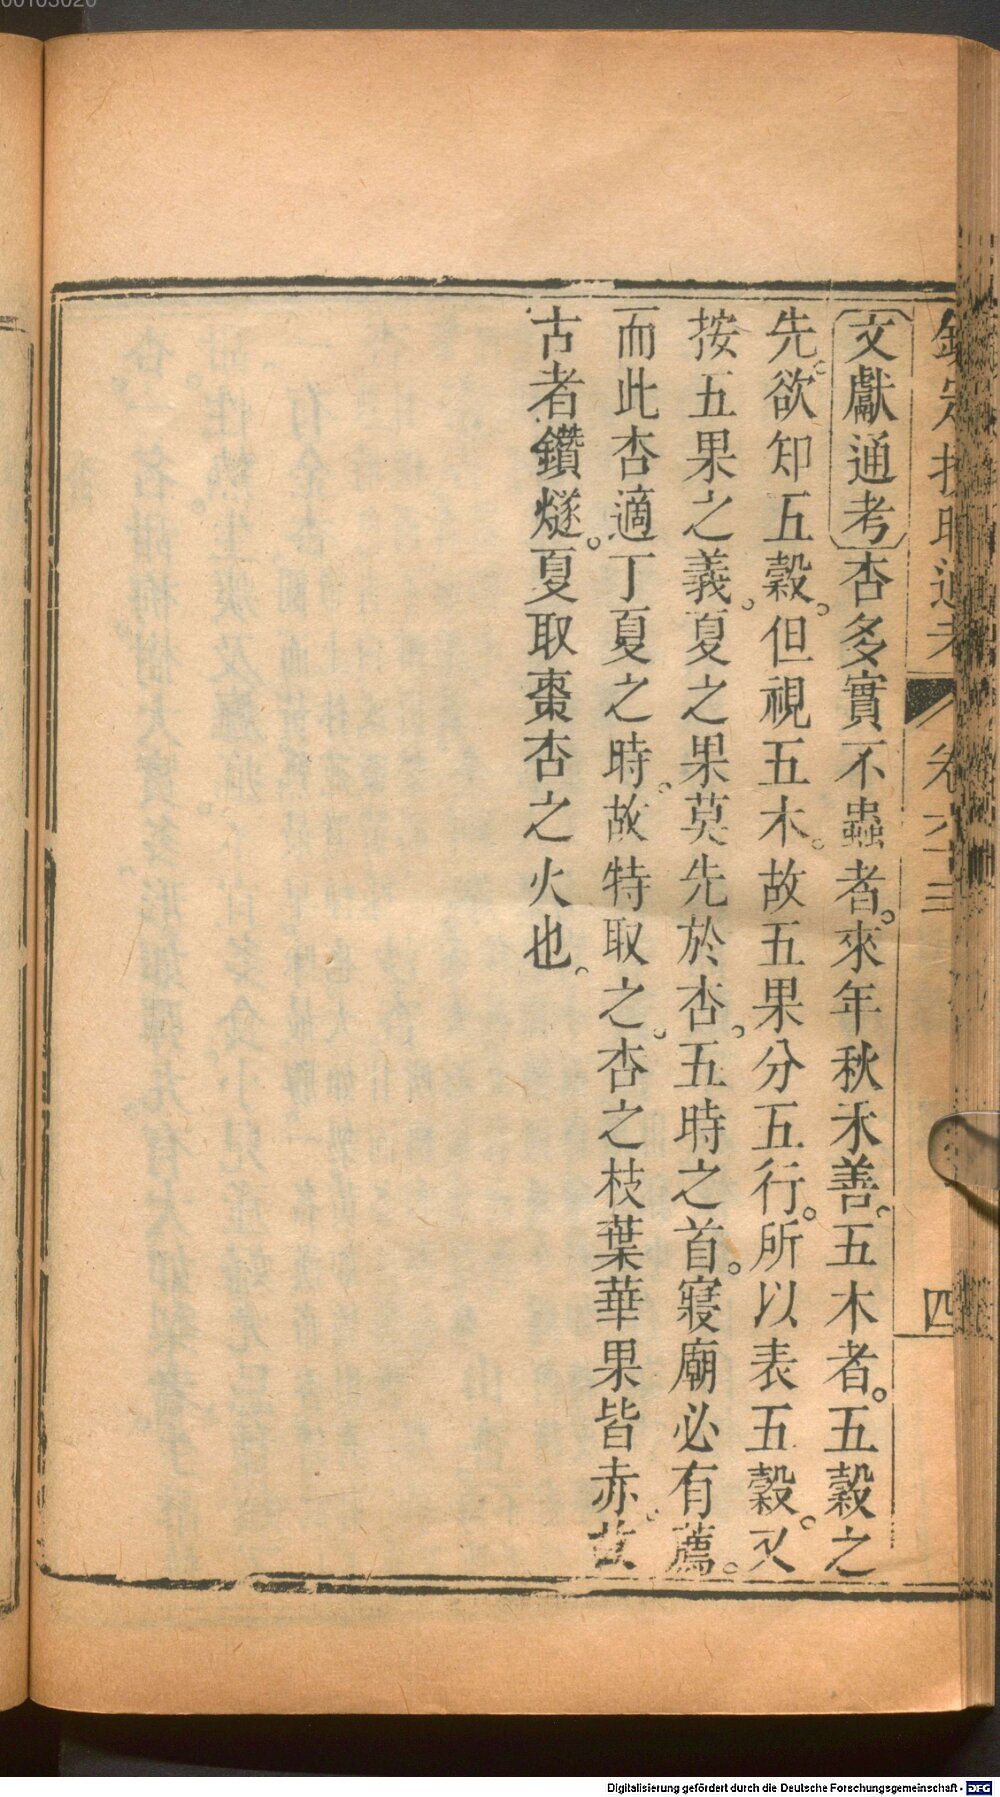 欽定授時通考 卷六十三 四
文獻通考杏多實不蟲者。來年秋禾善。五木者。五穀之
先。欲知五穀。但視五木。故五果分五行。所以表五穀。又
按五果之義。夏之果莫先於杏。五時之首。寢廟必有薦。
而此杏適丁夏之時。故特取之。杏之枝葉華果皆赤。故
古者鑽燧。夏取棗杏之火也。
00103020
Digitalisierung gefördert durch die Deutsche Forschungsgemeinschaft - DFG